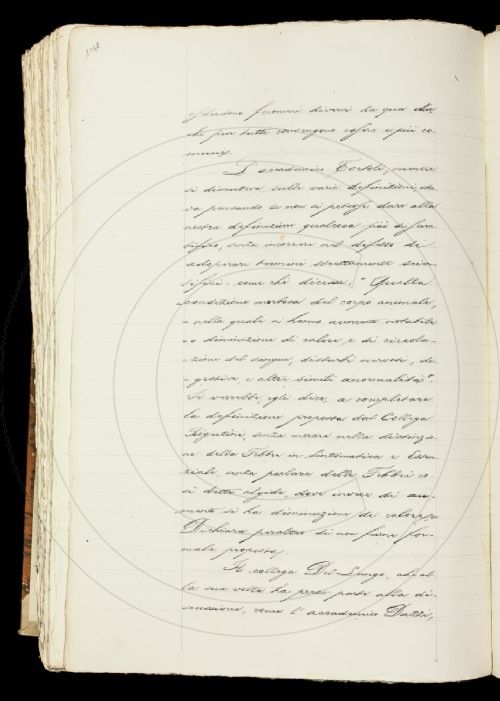 1041
fenomeni diversi da qua che,
che pur tutti convengono esser i più co-
muni.
L'accademico Tortoli, mentre
si discuteva sulle varie definizioni, sta-
va pensando se non si potesse dare alla
nostra definizione qualcosa più di scien-
tifico, senza incorrere nel difetto di
adoprar termini strettamente scien-
tifici; come chi dicesse: "Quella
condizione morbosa del corpo animale,
nella quale si hanno aumento notabile
o diminuzione di calore, e di circola-
zione del sangue, disturbi nervosi, di-
gestivi, e altre simili anormalità".
Si verrebbe, egli dice, a completare
la definizione proposta dal Collega
Rigutini, senza entrare nella distinzio-
ne della Febbre in Sintomatica e Essen-
ziale, senza parlare della Febbri co-
sì dette algide, dove invece di au-
mento si ha diminuzione di calore.
Dichiara peraltro di non farne for-
male proposta.
Il collega Del Lungo, che al-
la sua volta ha preso parte alla di-
scussione, come l'accademico Dazzi,